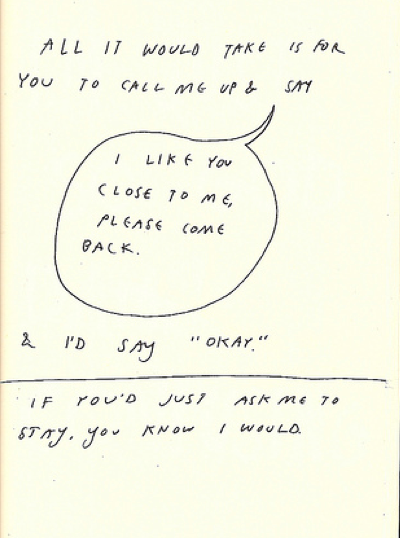 ALL IT WOULD TAKE IS FOR
YOU TO CALL ME UP & SAY
I LIKE YOU
CLOSE TO ME,
PLEASE COME
BACK.
& I'D SAY "OKAY."
IF YOU'D JUST ASK ME TO
STAY, YOU KNOW I WOULD.